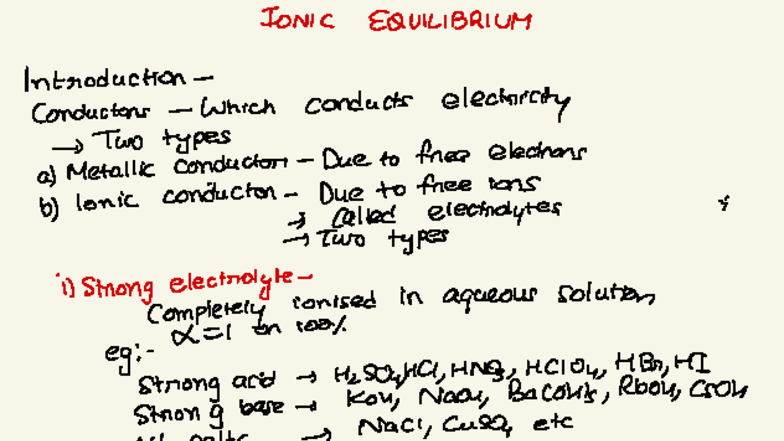 IONIC EQUILIBRIUM
Introduction –
Conductors – Which conducts electricity
→ Two types
a) Metallic conductor – Due to free electrons
b) Ionic conductor – Due to free ions
→ Called electrolytes
→ Two types
i) Strong electrolyte –
Completely ionised in aqueous solution,
α = 1 or 100%
eg:-
Strong acid → H₂SO₄, HCl, HNO₃, HClO₄, HBr, HI
Strong base → KOH, NaOH, Ba(OH)₂, RbOH, CsOH
→ NaCl, CuSO₄ etc